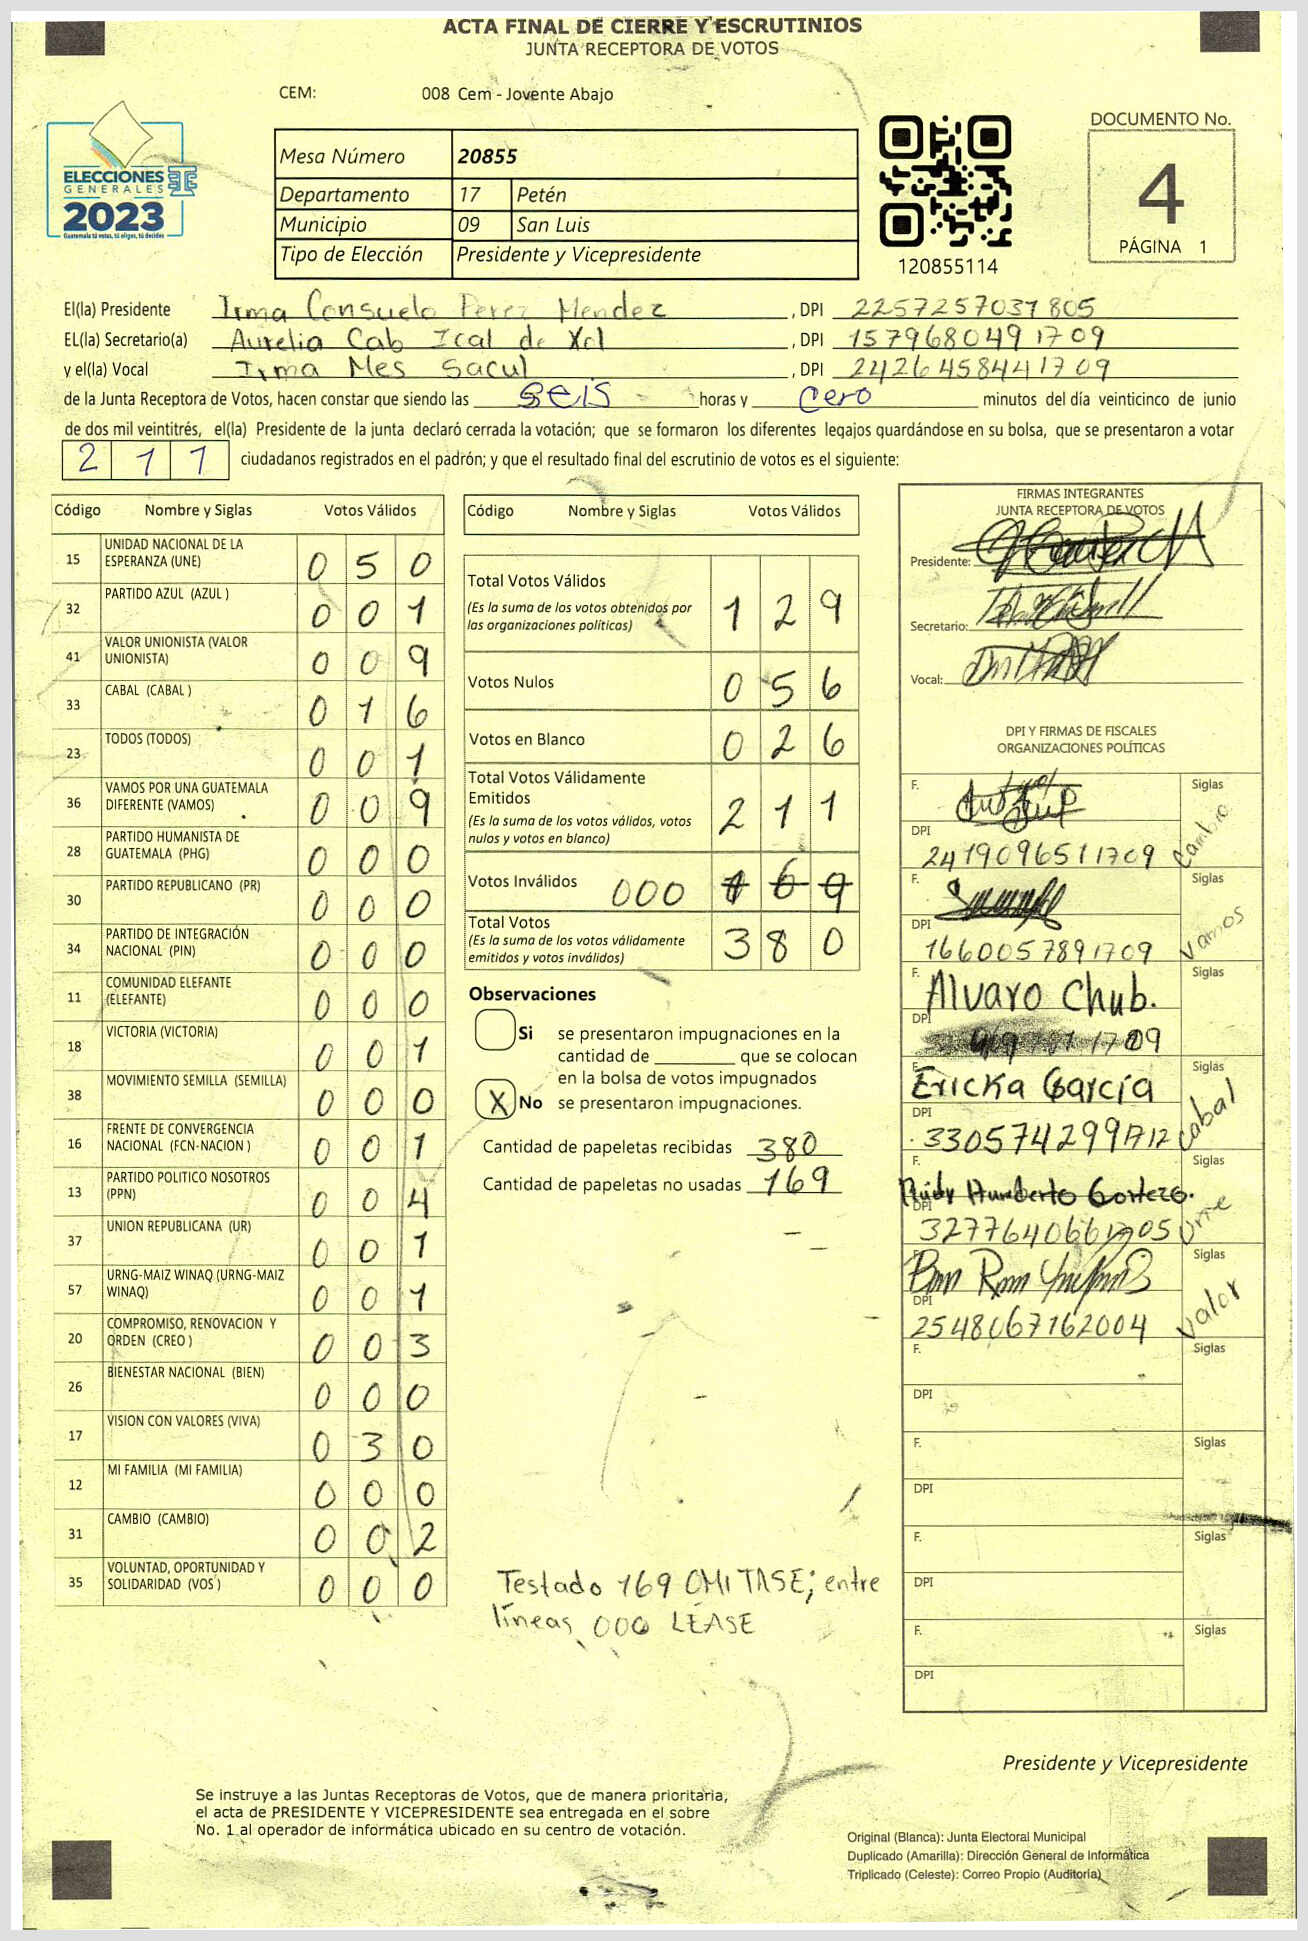 ACTA FINAL DE CIERRE Y ESCRUTINIOS
JUNTA RECEPTORA DE VOTOS
CEM: 008 Cem - Jovente Abajo
ELECCIONES
GENERALES
2023
Guatemala tú votas, tú eliges, tú decides
Mesa Número 20855
Departamento 17 Petén
Municipio 09 San Luis
Tipo de Elección Presidente y Vicepresidente
120855114
DOCUMENTO No.
4
PÁGINA 1
El(la) Presidente Irma Consuelo Perez Mendez, DPI 2257257031805
EL(la) Secretario(a) Aurelia Cab Ical de Xol, DPI 1579680491709
y el(la) Vocal Irma Mes Sacul, DPI 2426458441709
de la Junta Receptora de Votos, hacen constar que siendo las seis horas y cero minutos del día veinticinco de junio
de dos mil veintitrés, el(la) Presidente de la junta declaró cerrada la votación; que se formaron los diferentes legajos guardándose en su bolsa, que se presentaron a votar
211 ciudadanos registrados en el padrón; y que el resultado final del escrutinio de votos es el siguiente:
Código Nombre y Siglas Votos Válidos
15 UNIDAD NACIONAL DE LA ESPERANZA (UNE) 0 5 0
32 PARTIDO AZUL (AZUL ) 0 0 1
41 VALOR UNIONISTA (VALOR UNIONISTA) 0 0 9
33 CABAL (CABAL ) 0 1 6
23 TODOS (TODOS) 0 0 1
36 VAMOS POR UNA GUATEMALA DIFERENTE (VAMOS) 0 0 9
28 PARTIDO HUMANISTA DE GUATEMALA (PHG) 0 0 0
30 PARTIDO REPUBLICANO (PR) 0 0 0
34 PARTIDO DE INTEGRACIÓN NACIONAL (PIN) 0 0 0
11 COMUNIDAD ELEFANTE (ELEFANTE) 0 0 0
18 VICTORIA (VICTORIA) 0 0 1
38 MOVIMIENTO SEMILLA (SEMILLA) 0 0 0
16 FRENTE DE CONVERGENCIA NACIONAL (FCN-NACION ) 0 0 1
13 PARTIDO POLITICO NOSOTROS (PPN) 0 0 4
37 UNION REPUBLICANA (UR) 0 0 1
57 URNG-MAIZ WINAQ (URNG-MAIZ WINAQ) 0 0 1
20 COMPROMISO, RENOVACION Y ORDEN (CREO ) 0 0 3
26 BIENESTAR NACIONAL (BIEN) 0 0 0
17 VISION CON VALORES (VIVA) 0 3 0
12 MI FAMILIA (MI FAMILIA) 0 0 0
31 CAMBIO (CAMBIO) 0 0 2
35 VOLUNTAD, OPORTUNIDAD Y SOLIDARIDAD (VOS ) 0 0 0
Código Nombre y Siglas Votos Válidos
Total Votos Válidos 1 2 9
(Es la suma de los votos obtenidos por
las organizaciones políticas)
Votos Nulos 0 5 6
Votos en Blanco 0 2 6
Total Votos Válidamente
Emitidos 2 1 1
(Es la suma de los votos válidos, votos
nulos y votos en blanco)
Votos Inválidos 000 1 6 9
Total Votos 3 8 0
(Es la suma de los votos válidamente
emitidos y votos inválidos)
Observaciones
Si se presentaron impugnaciones en la
cantidad de ________ que se colocan
en la bolsa de votos impugnados
X No se presentaron impugnaciones.
Cantidad de papeletas recibidas 380
Cantidad de papeletas no usadas 169
Testado 169 OMITASE; entre
líneas 000 LEASE
FIRMAS INTEGRANTES
JUNTA RECEPTORA DE VOTOS
Presidente:
Secretario:
Vocal:
DPI Y FIRMAS DE FISCALES
ORGANIZACIONES POLÍTICAS
F. Siglas
DPI 2419096511709 Cambio
F. Siglas
DPI 1660057891709 Vamos
F. Alvaro Chub. Siglas
DPI
F. Ericka García Siglas
DPI 3305742991712 Cabal
F. Rudy Humberto Siglas
DPI 3277640661705 Une
F. Siglas
DPI 2548067162004 Valor
F. Siglas
DPI
F. Siglas
DPI
F. Siglas
DPI
F. Siglas
DPI
Presidente y Vicepresidente
Se instruye a las Juntas Receptoras de Votos, que de manera prioritaria,
el acta de PRESIDENTE Y VICEPRESIDENTE sea entregada en el sobre
No. 1 al operador de informática ubicado en su centro de votación.
Original (Blanca): Junta Electoral Municipal
Duplicado (Amarilla): Dirección General de Informática
Triplicado (Celeste): Correo Propio (Auditoría)